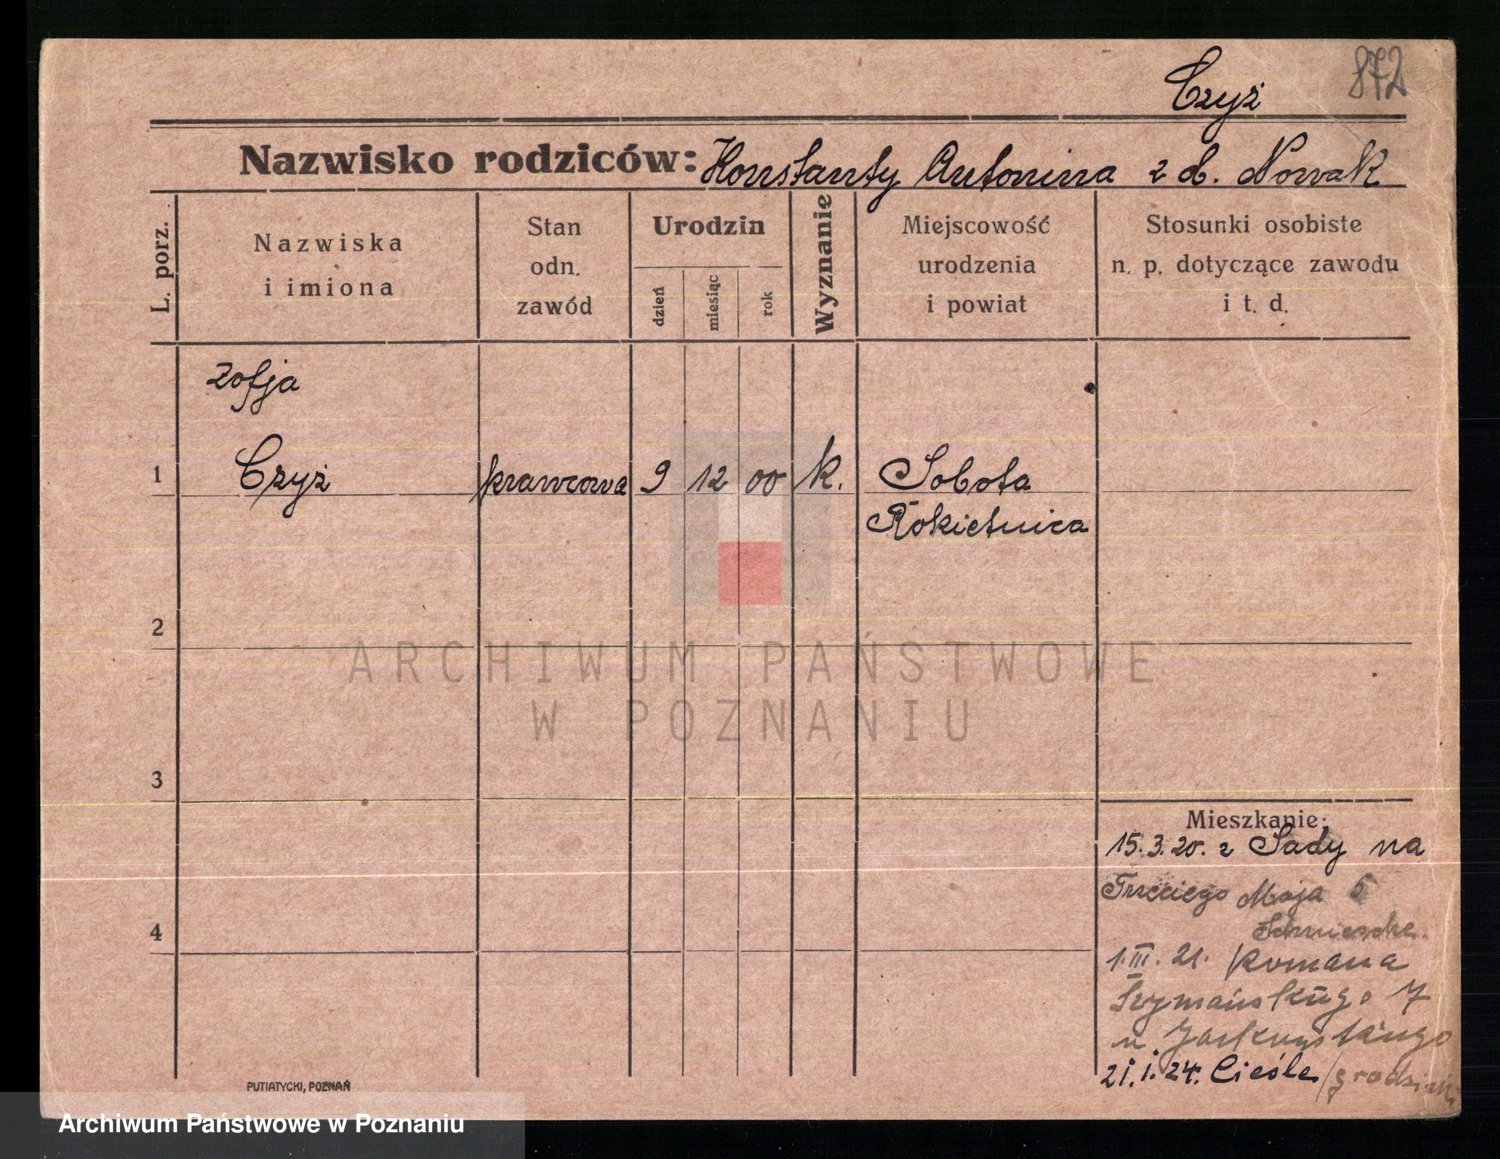 Czyż 872
Nazwisko rodziców: Konstanty Antonina z d. Nowak
L. porz.
Nazwiska
i imiona
Stan
odn.
zawód
Urodzin
dzień
miesiąc
rok
Wyznanie
Miejscowość
urodzenia
i powiat
Stosunki osobiste
n. p. dotyczące zawodu
i t. d.
Zofja
1 Czyż krawcowa 9 12 00 k. Sobota
Rokietnica
2
ARCHIWUM PAŃSTWOWE
W POZNANIU
3
Mieszkanie:
15.3.20. z Sady na
Trzeciego Maja 5
4
1.III.21. Romana
Szymańskiego 7
u
21.1.24. Cieśle
PUTIATYCKI, POZNAŃ
Archiwum Państwowe w Poznaniu